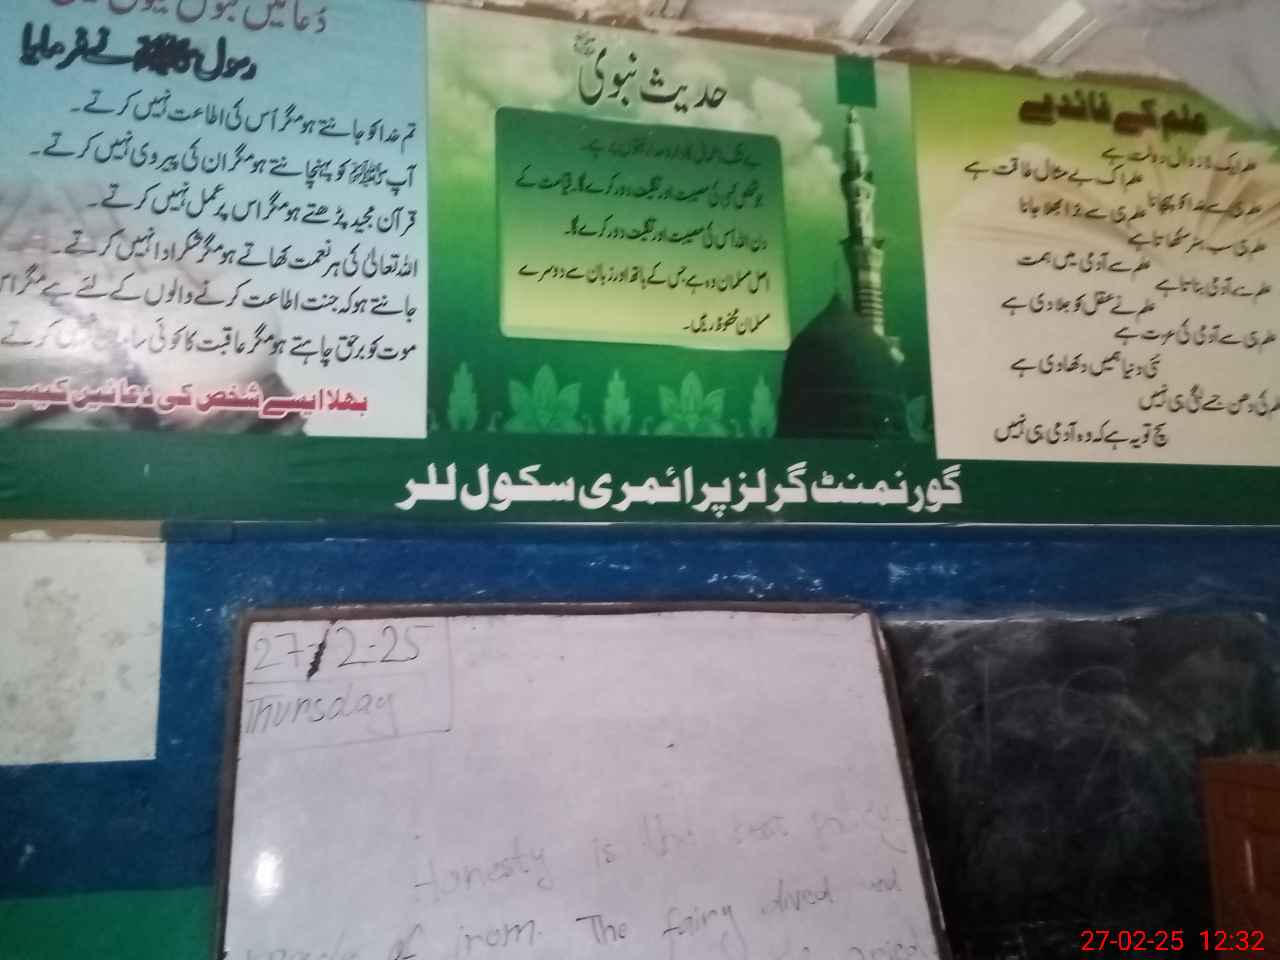 رسول ﷺ نے فرمایا
تم خدا کو جانتے ہو مگر اُس کی اطاعت نہیں کرتے۔
آپ ﷺ کو پہنچانتے ہو مگر ان کی پیروی نہیں کرتے۔
قرآن مجید پڑھتے ہو مگر اس پر عمل نہیں کرتے۔
اللہ تعالیٰ کی ہر نعمت کھاتے ہو مگر شکر ادا نہیں کرتے۔
جانتے ہو کہ جنت اطاعت کرنے والوں کے لئے ہے مگر
موت کو برحق چاہتے ہو مگر عاقبت کا کوئی کرتے
بھلا ایسے شخص کی دُعائیں کیسے
حدیث نبویؐ
جو شخص کسی کی مصیبت اور تکلیف دور کرے گا۔ قیامت کے
دن اللہ اُس کی مصیبت اور تکلیف دور کرے گا۔
اصل مسلمان وہ ہے جس کے ہاتھ اور زبان سے دوسرے
مسلمان محفوظ رہیں۔
علم کے فائدے
علم ایک لازوال دولت ہے
علم اک بے مثال طاقت ہے
علم ہی سے خدا کو پہچانا
علم ہی سے بُرا بھلا جانا
علم ہی سب ہنر سکھاتا ہے
علم سے آدمی بناتا ہے
علم سے آدمی میں ہمت
علم نے عقل کو جلا دی ہے
علم ہی سے آدمی کی عزت ہے
نئی دنیا ہمیں دکھا دی ہے
علم کی دھن جسے لگی ہی نہیں
سچ تو یہ ہے کہ وہ آدمی ہی نہیں
گورنمنٹ گرلز پرائمری سکول للر
27-2-25
Thursday
Honesty is the best policy.
made of iron. The fairy dived and
27-02-25 12:32